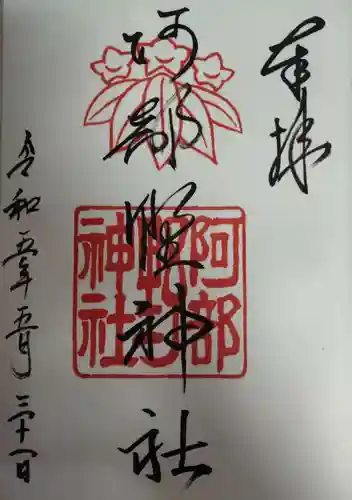 奉拝
阿部野神社
阿部野神社
令和五年五月三十一日